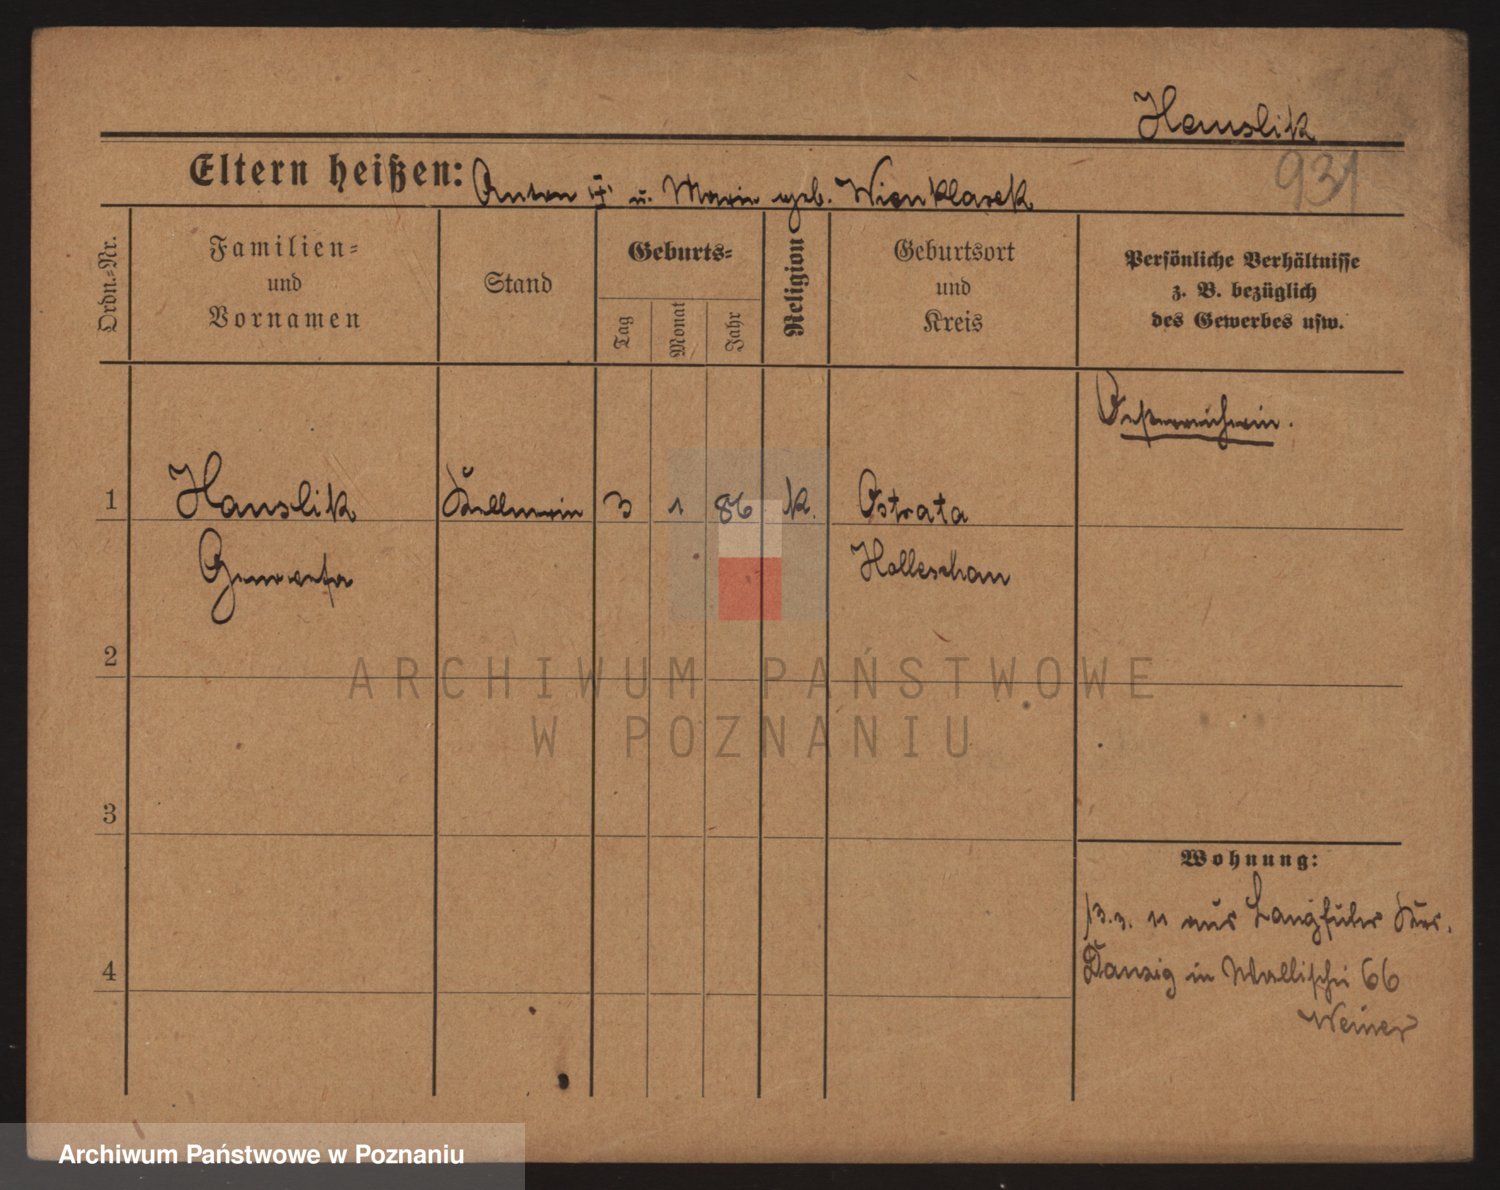 Hauslik
931
Eltern heißen: Anton ‡ u. Marie geb. Wienklarek
Ordn.-Nr.
Familien-
und
Vornamen
Stand
Geburts-
Tag
Monat
Jahr
Religion
Geburtsort
und
Kreis
Persönliche Verhältnisse
z. B. bezüglich
des Gewerbes usw.
Oesterreicherin.
1 Hanslik Kellnerin 3 1 86 k. Ostrata
Genoveva
Holleschau
2
3
4
Wohnung:
13.3. 11 aus Langfuhr Krs.
Danzig in Wallischei 66
Weiner
ARCHIWUM PAŃSTWOWE
W POZNANIU
Archiwum Państwowe w Poznaniu